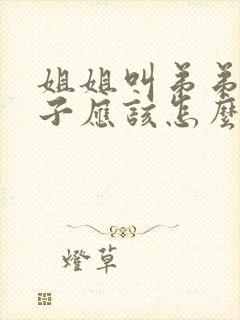 姐姐叫弟弟
子應該怎麼
燈草